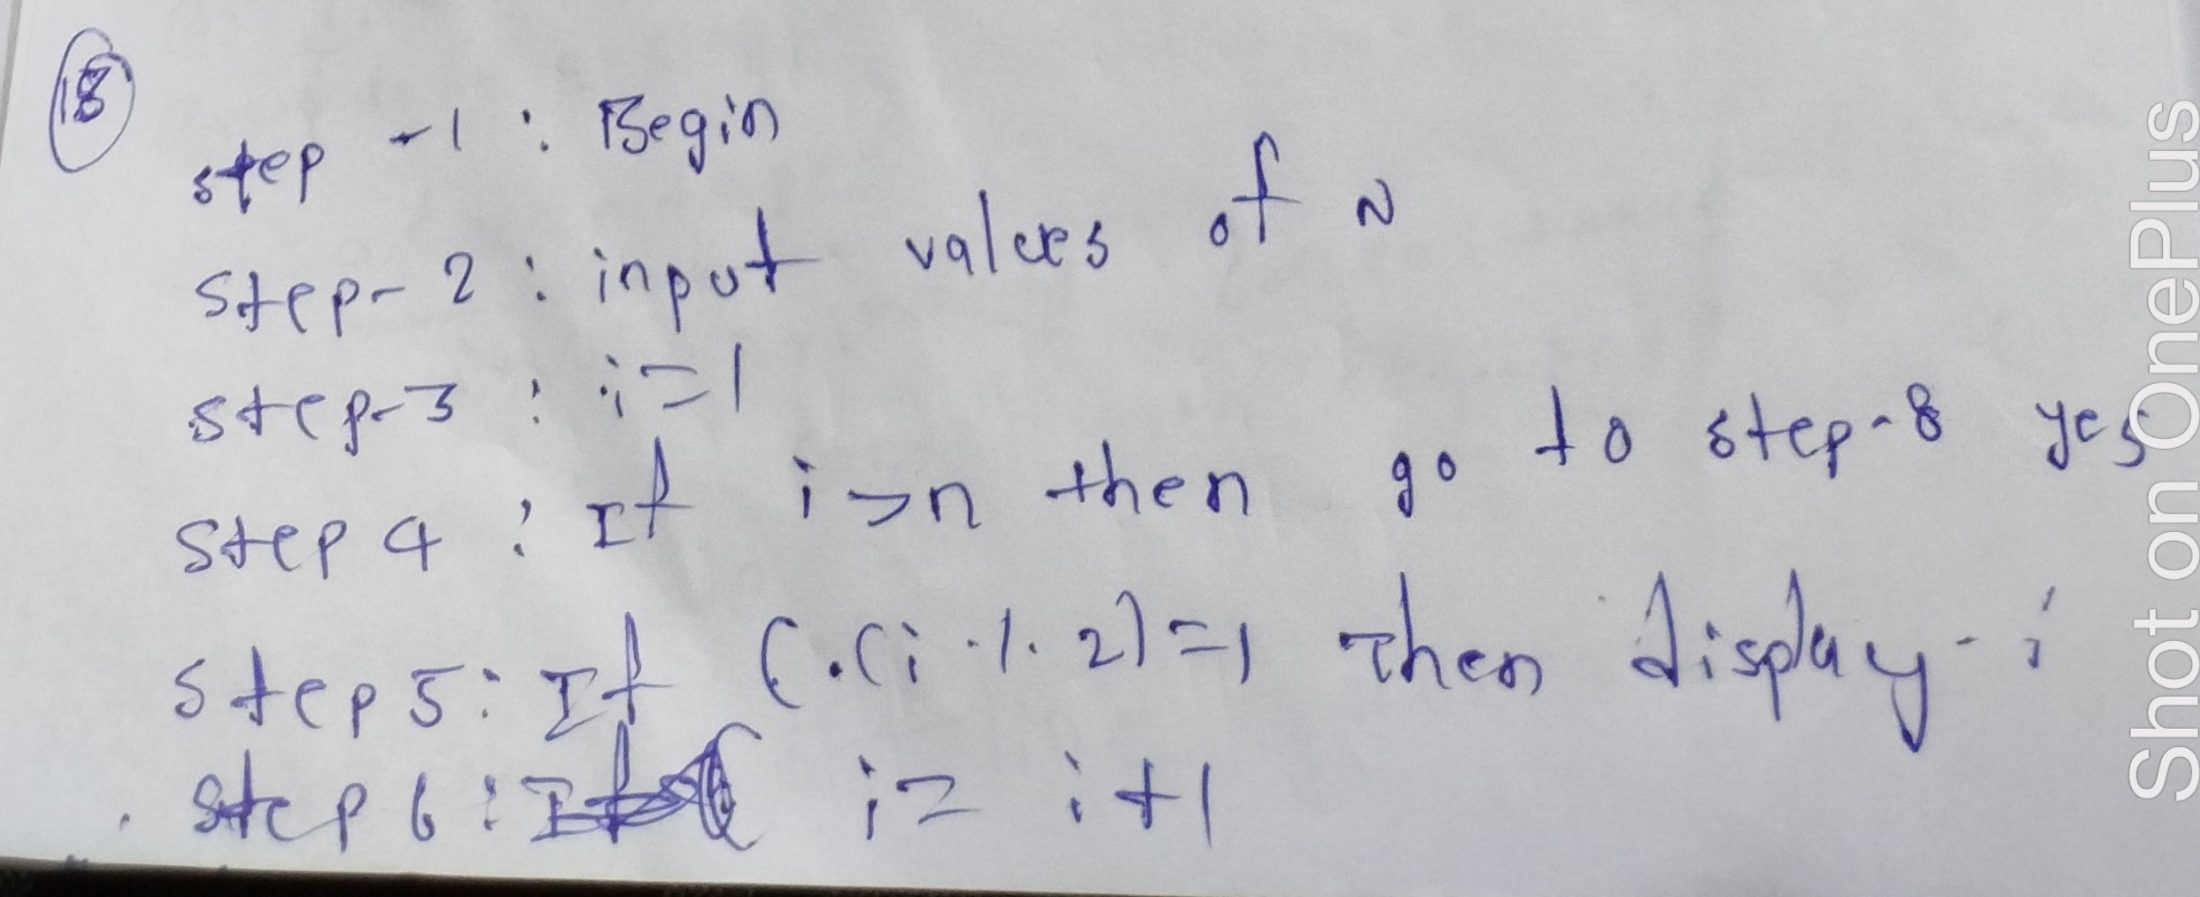 18
step -1 : Begin
step- 2 : input values of N
step-3 : i=1
step 4 : If i>n then go to step-8 yes
step 5: If ((i % 2)=1 then display - i
step 6 : i= i+1
Shot on OnePlus